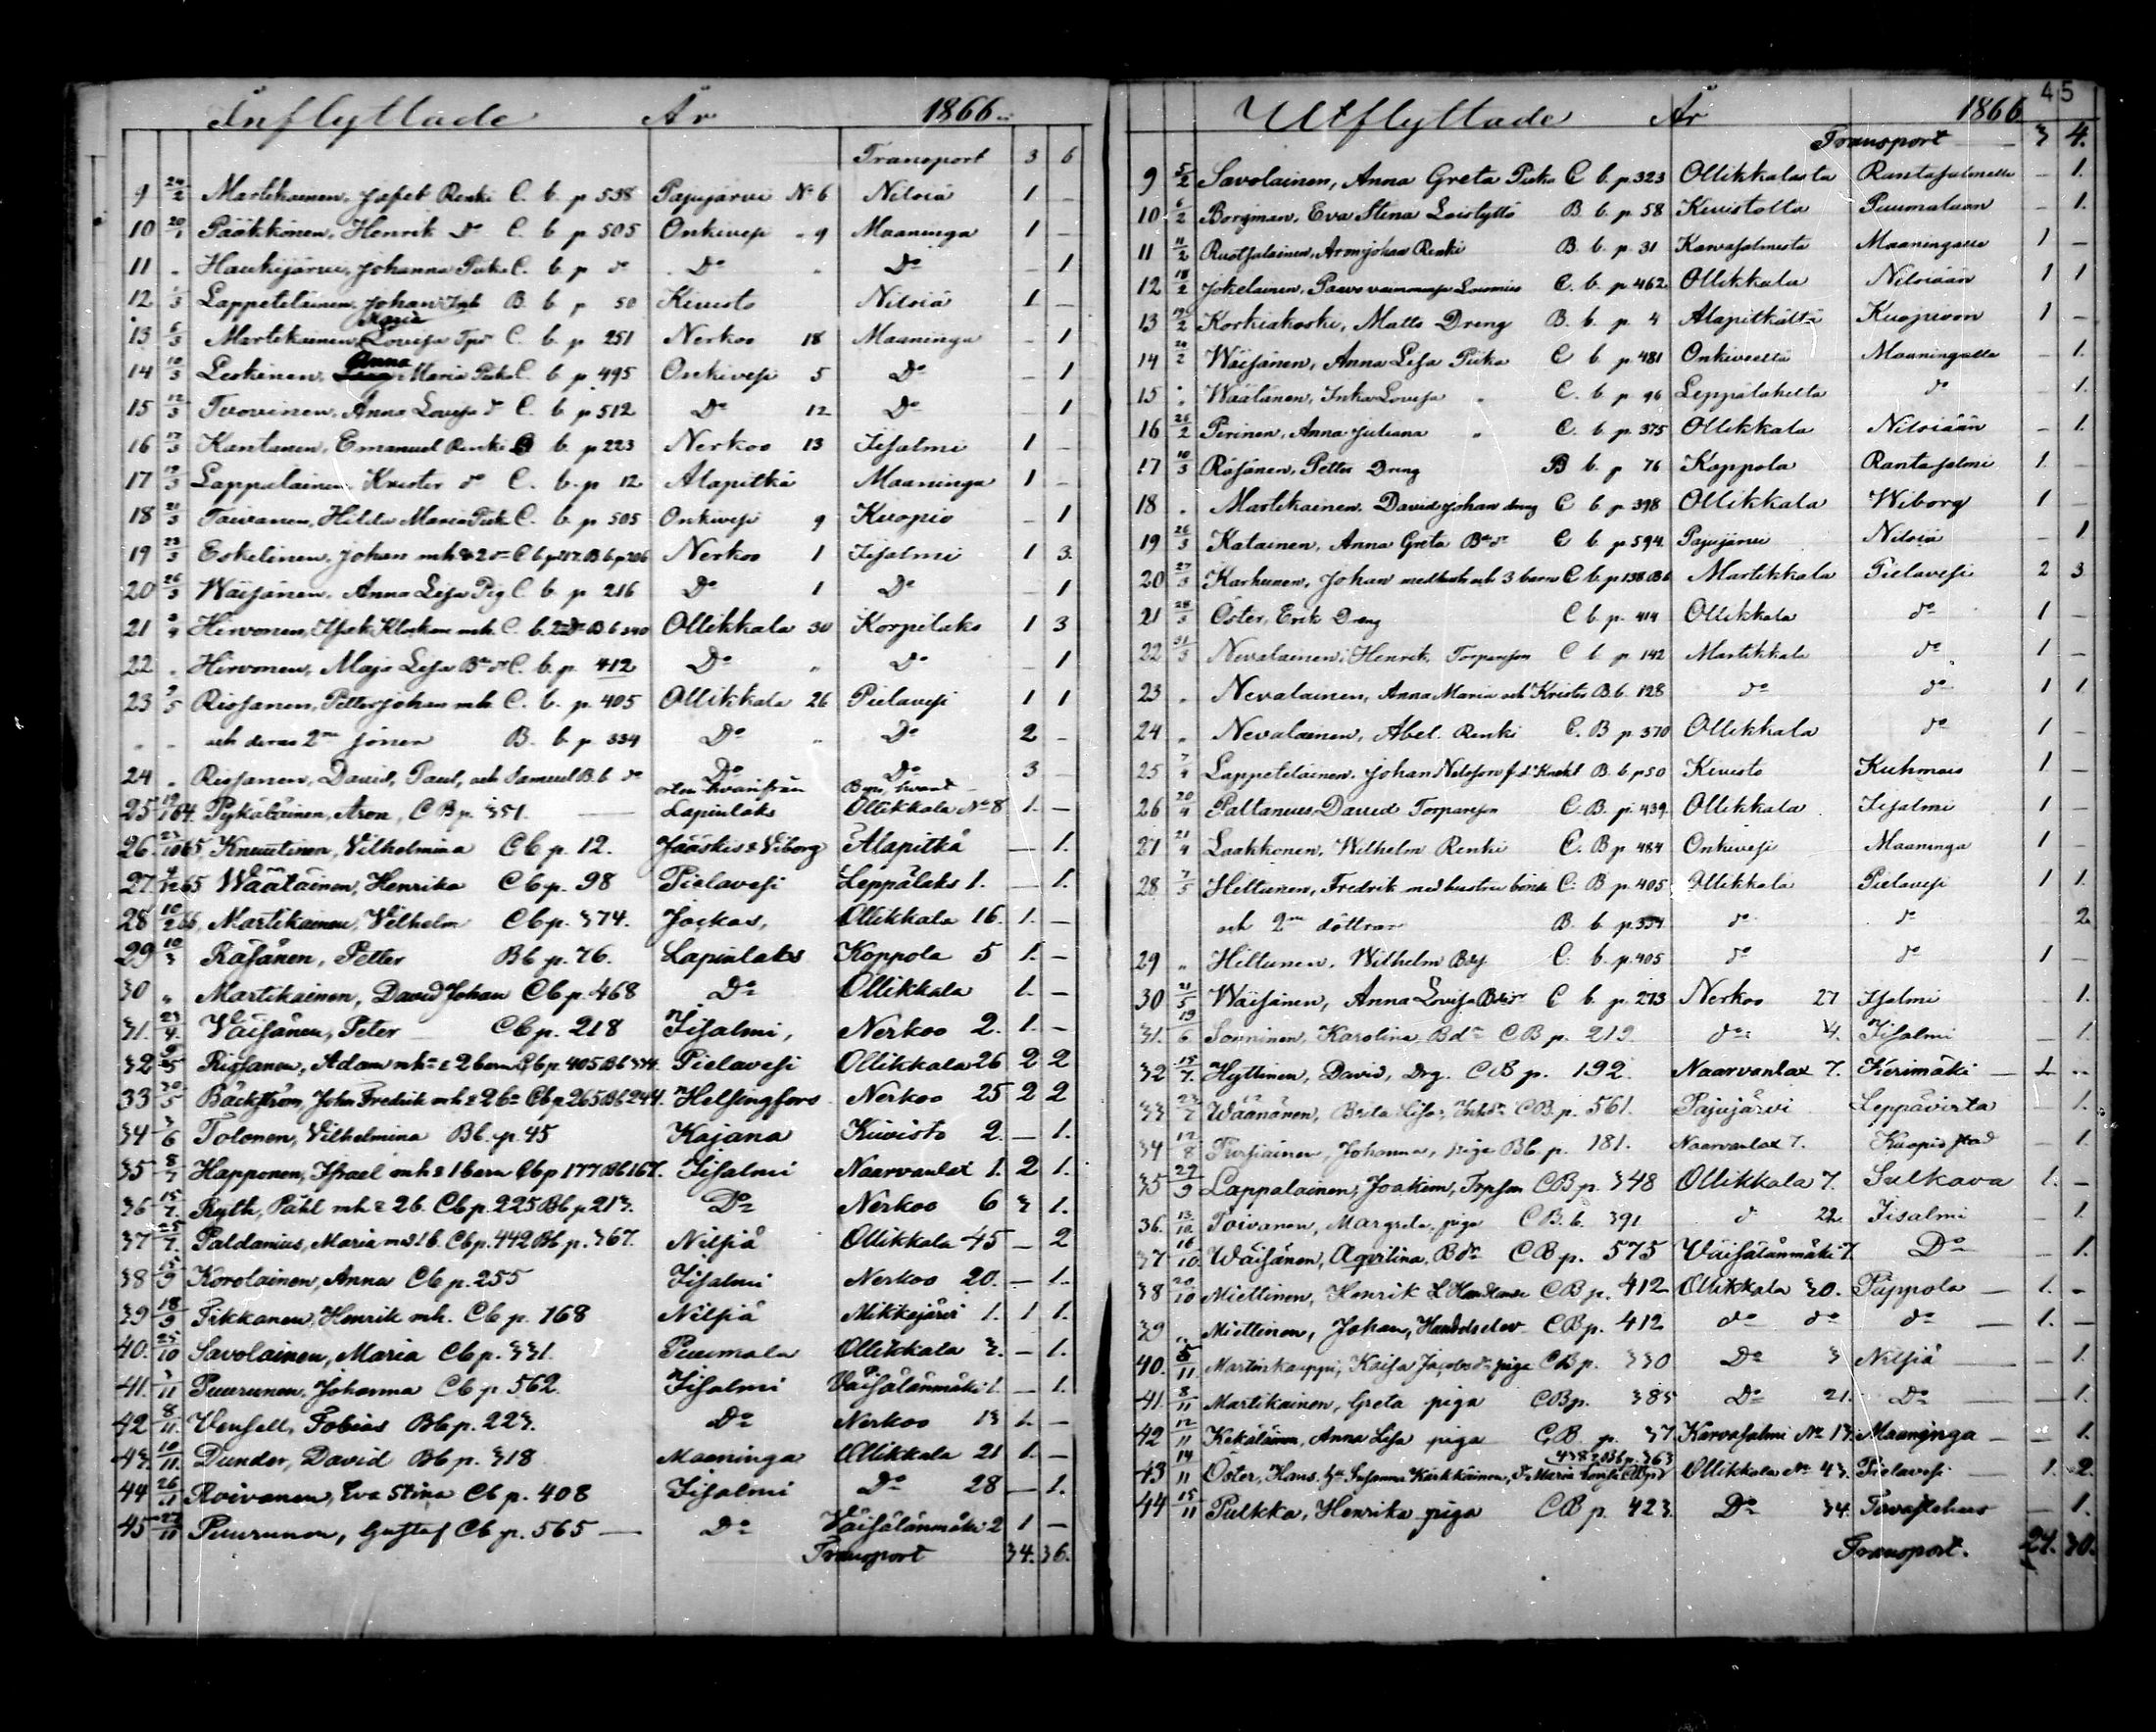 45
Inflyttade År 1866
Transport 3 6
9 24/2 Martikainen, Jafet Renki C. b. p 538 Pajujärvi No 6 Nilsiä 1 –
10 20/1 Pääkkönen, Henrik do C. b p 505 Onkivesi " 9 Maaninga 1 –
11 " Haukijärvi, Johanna Piika C. b. p do Do " Do – 1
12 1/3 Lappeteläinen, Johan B. b p 50 Kivisto Nilsiä 1 –
13 6/3 Martikainen, Maria Lovisa C. b. p 251 Nerkoo 18 Maaninga – 1
14 10/3 Leskinen, Anna Maria Piika C. b p 495 Onkivesi 5 Do – 1
15 12/3 Tuovinen, Anna Lovisa do C. b. p 512 Do 12 Do – 1
16 17/3 Kantanen, Emanuel Renki B b. p 223 Nerkoo 13 Iisalmi 1 –
17 19/3 Lappalainen, Krister do C. b. p 12 Alapitkä Maaninga 1 –
18 21/3 Toivanen, Hilda Maria Piik C. b. p 505 Onkivesi 9 Kuopio – 1
19 23/3 Eskelinen, Johan mh & 2 C b p 217. B b p 206 Nerkoo 1 Iisalmi 1 3
20 26/3 Wäisänen, Anna Lisa Pig C. b. p 216 Do 1 Do – 1
21 Hirvonen, Isak Klockare mh. C. b. B b 340 Ollikkala 30 Korpilaks 1 3
22 " Hirvonen, Maja Lisa C. b. p. 412 Do " Do – 1
23 Rissanen, Petter Johan mh. C. b. p. 405 Ollikkala 26 Pielavesi 1 1
" " och deras 2ne söner B. b p 334 Do " Do 2 –
24 " Rissanen, David, Paul, och Samuel B. b do Do Do 3 –
orten hvarifrån Byn, hvart
25 19/1 64. Pykäläinen, Aron, C B p. 351. Lapinlaks Ollikkala No 8 1. –
26. 23/10 65, Knuutinen, Vilhelmina C b p. 12. Jääskis & Viborg Alapitkä – 1.
27 4/12 65 Wäätäinen, Henrika C b p. 98 Pielavesi Leppälaks 1. – 1.
28 10/2 66, Martikainen, Vilhelm C b p. 374. Jockas, Ollikkala 16. 1. –
29 10/3 Räsänen, Petter B b p. 76. Lapinlaks Koppola 5 1. –
30 " Martikainen, David Johan C b p. 468 Do Ollikkala 1. –
31. 23/4. Väisänen, Peter C b p. 218 Iisalmi, Nerkoo 2. 1. –
32 9/5 Rissanen, Adam mh & 2 barn C b p. 405 B b 334. Pielavesi Ollikkala 26 2 2
33 30/5 Bäckström, Joh. Fredrik mh & 2 b C b p 265 B b 244. Helsingfors Nerkoo 25 2 2
34 3/6 Tolonen, Vilhelmina B b. p. 45 Kajana Kivisto 2. – 1.
35 8/7 Happonen, Israel mh & 1 barn C b p 177 B b 167. Iisalmi Naarvanlax 1. 2 1.
36 15/7. Ryth, Påhl mh & 2 b. C b p. 225 B b p 213. Do Nerkoo 6 3 1.
37 25/7. Paldanius, Maria med 1 b. C b p. 442 B b p. 367. Nilsiä Ollikkala 45 – 2
38 15/9 Korolainen, Anna C b p. 255 Iisalmi Nerkoo 20. – 1.
39 18/9 Tikkanen, Henrik mh. C b p. 168 Nilsiä Mikkajärvi 1. 1 1.
40. 25/10 Savolainen, Maria C b p. 331. Puumala Ollikkala 3. – 1.
41. 3/11 Puurunen, Johanna C b p. 562. Iisalmi Väisälänmäki 1. – 1.
42 8/11. Vensell, Tobias B b p. 223. Do Nerkoo 13 1. –
43. 10/11. Dunder, David B b p. 318 Maaninga Ollikkala 21 1. –
44 26/11 Roivanen, Eva Stina C b p. 408 Iisalmi Do 28 – 1.
45 27/11 Puurunen, Gustaf C b p. 565 – Do Väisälänmäki 2 1 –
Transport 34. 36.
Utflyttade År 1866
Transport 3 4.
9 5/2 Savolainen, Anna Greta Piika C b. p. 323 Ollikkalasta Rantasalmelle – 1.
10 6/2 Borgman, Eva Stina Loistyttö B. b. p. 58 Kivistolta Puumalaan – 1.
11 11/2 Ruotsalainen, Aron Johan Renki B. b. p. 31 Karvasalmesta Maaningalle 1 –
12 18/2 Jokelainen, Paavo vaimonsa C. b. p. 462 Ollikkala Nilsiään 1 1
13 19/2 Korkiakoski, Matts Dreng B. b. p. 4 Alapitkältä Kuopioon 1 –
14 20/2 Wäisänen, Anna Lisa Piika C b p. 481 Onkivesiltä Maaningalle – 1.
15 " Wäätänen, Inka Lovisa " C. b. p 96 Leppälahelta do – 1.
16 26/2 Pirinen, Anna Juliana " C. b. p. 375 Ollikkala Nilsiään – 1.
17 10/3 Räsänen, Petter Dreng B b. p 76 Koppola Rantasalmi 1. –
18 " Martikainen, David Johan dreng C b p. 398 Ollikkala Wiborg 1 –
19 26/3 Katainen, Anna Greta C b p. 594. Pajujärvi Nilsiä – 1
20 27/3 Karhunen, Johan med hustr och 3 barn C b. p. 138. B b Martikkala Pielavesi 2 3
21 28/3 Öster, Erik Dreng C b p. 414 Ollikkala do 1 –
22 31/3 Nevalainen, Henrik, Torpareson C b p 142 Martikkala do 1 –
23 " Nevalainen, Anna Maria och Krister B. b. 128 do do 1 1.
24 " Nevalainen, Abel. Renki C. B p. 370 Ollikkala do 1 –
25 7/4 Lappeteläinen, Johan Nilsson B. b. p 50 Kivisto Kuhmois 1 –
26 20/4 Paltanius, David Torpareson C. B. p. 439. Ollikkala Iisalmi 1 –
27 21/4 Laakkonen, Wilhelm Renki C. B p 484 Onkivesi Maaninga 1 –
28 7/5 Hiltunen, Fredrik med hustru bonde C. B p. 405 Ollikkala Pielavesi 1 1.
och 2ne döttrar B. b p. 334 do do 2.
29 " Hiltunen, Wilhelm C. b. p. 405 do do 1 –
30 21/5 Wäisänen, Anna Lovisa C b. p. 273 Nerkoo 27 Isalmi 1.
31. 19/6 Sonninen, Karolina Bdr C B p. 219 do 4. Iisalmi – 1.
32 15/7. Hyttinen, David, Drg. C B p. 192. Naarvanlax 7. Kerimäki – 1. –
33 23/7 Wäänänen, Brita Lisa, C B. p. 561. Pajujärvi Leppävirta – 1.
34 12/8 Tursiainen, Johanna, piga B b. p. 181. Naarvanlax 7. Kuopio stad – 1.
35 29/9 Lappalainen, Joakim, Trpson C B p. 348 Ollikkala 7. Sulkava 1. –
36. 13/10. Toivanen, Margreta, piga C B. b. 391 d 22. Iisalmi – 1.
37 16/10. Wäisänen, Aqvilina, Bdr C B p. 575 Väisälänmäki 7. Do – 1.
38 20/10 Miettinen, Henrik C B p. 412 Ollikkala 30. Pappola – 1. –
39 " Miettinen, Johan, C B p. 412 do do do – 1. –
40. 5/11 Martinkauppi, Kaisa Jacobsdr piga C B p. 330 Do 3 Nilsiä – 1.
41. 8/11 Martikainen, Greta piga C B p. 385 Do 21. Do – 1.
42 12/11 Kekäläinen, Anna Lisa piga C. B. p. 37. Karvasalmi No 13. Maaninga – – 1.
438 & B b p. 363
43 14/11 Öster, Hans, Susanna Kärkkäinen, Maria Lovisa C B p Ollikkala No 43. Pielavesi – 1. 2.
44 15/11 Pulkka, Henrika piga C B p. 423. Do 34. Tavastehus – 1.
Transport. 24. 30.